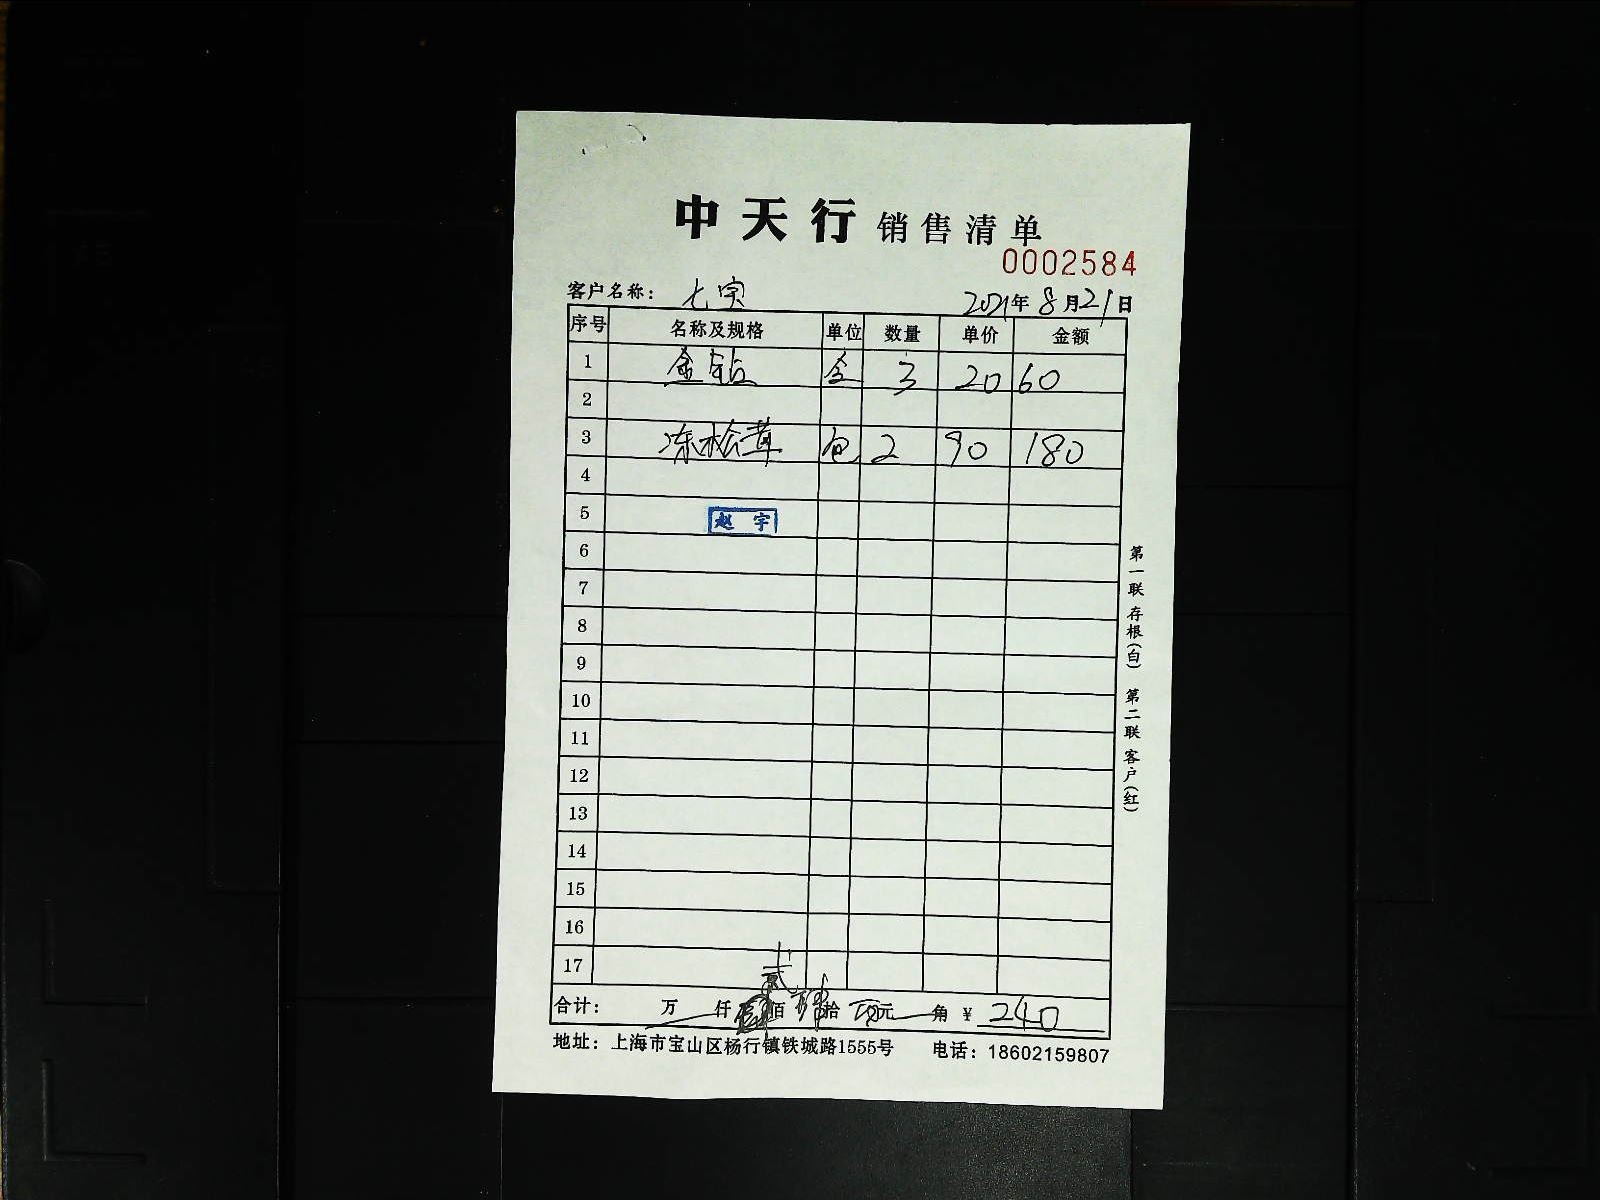 中天行 销售清单
0002584
客户名称： 七宝 2021年8月21日
序号 名称及规格 单位 数量 单价 金额
1 金钻 3 20 60
2
3 冻松茸 包 2 90 180
4
5 赵宇
6
7
8
9
10
11
12
13
14
15
16
17
合计： 万 仟 贰佰 肆拾 元 角 ¥ 240
地址：上海市宝山区杨行镇铁城路1555号 电话：18602159807
第一联 存根(白) 第二联 客户(红)